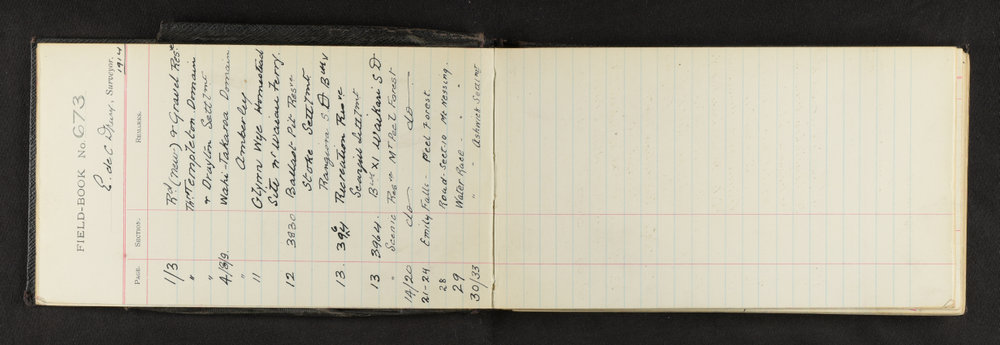 FIELD-BOOK No. 673
E. de C. Drury, Surveyor.
1914
PAGE. SECTION. REMARKS.
1/3 Rd (new) & Gravel Rese
" Thro Templeton Domain
" & Drayton Settlmt
4/8/9. Waki-Takaroa Domain
" Amberley
11 Glynn Wye Homestead
Site nr Waiau Ferry.
12 3830 Ballast Pit Resve
Stoke Settlmt
Rangiora S D Blk V
13. Recreation Resve
Scargill Settlmt
13 3964 Blk XI Waikari S D
" Scenic Resve Mt Peel Forest
14/20 do do
21-24 Emily Falls - Peel Forest.
28 Road - Sect 10 Mt Nessing.
29 Water Race " "
30/33 " " Ashwick Settlmt